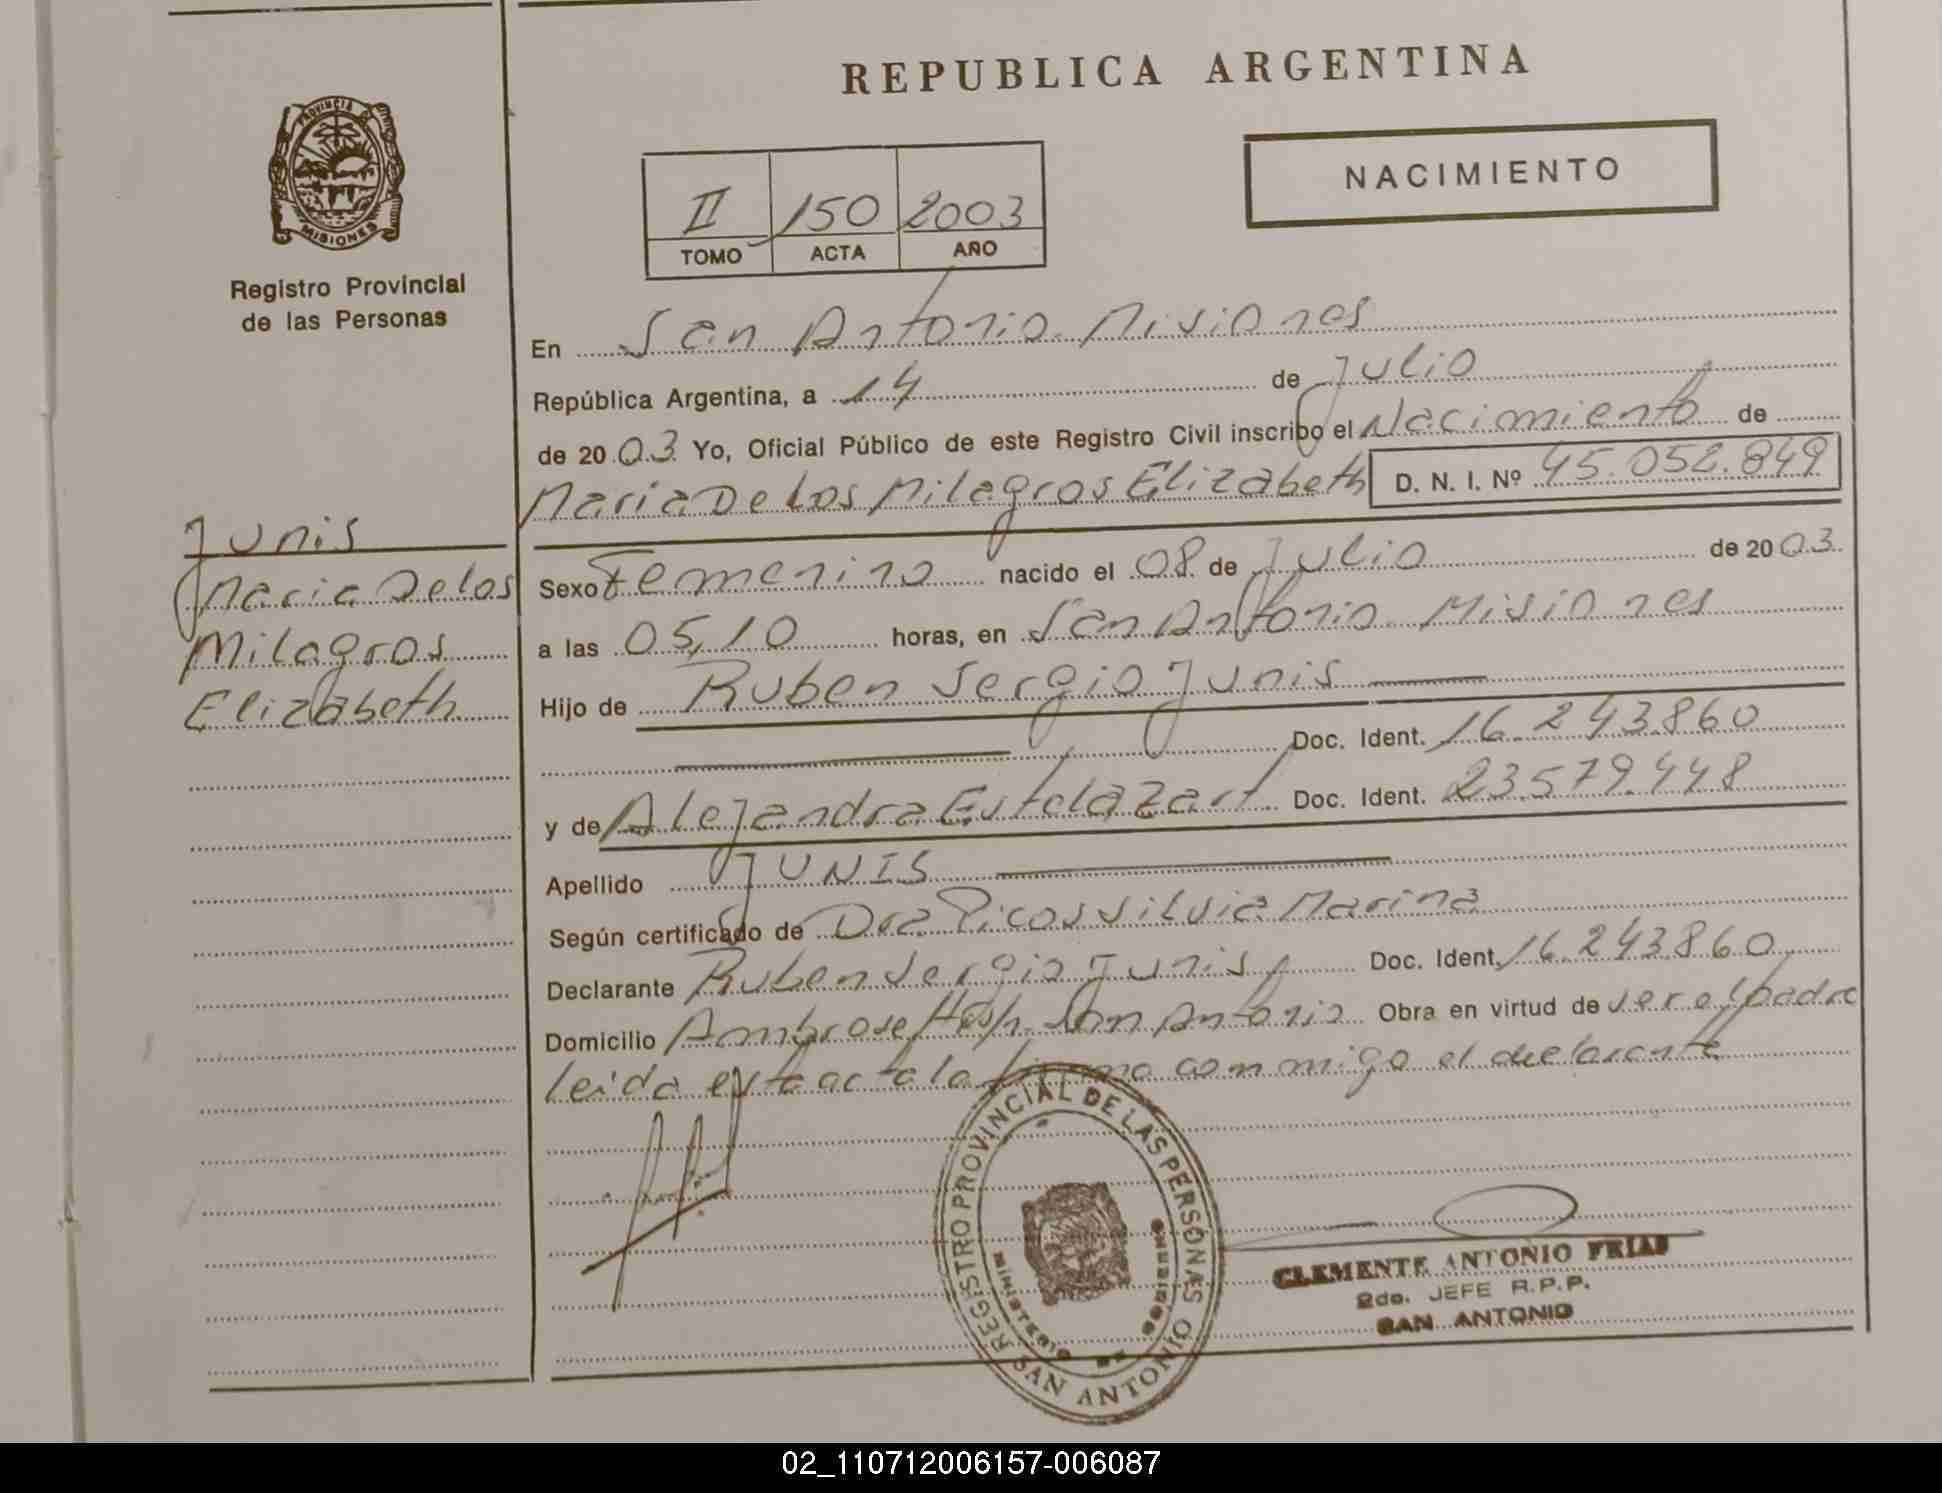 REPUBLICA ARGENTINA
PROVINCIA DE
MISIONES
Registro Provincial
de las Personas
NACIMIENTO
II 150 2003
TOMO ACTA AÑO
En San Antonio Misiones
República Argentina, a 14 de Julio
de 2003 Yo, Oficial Público de este Registro Civil inscribo el Nacimiento de
Maria De Los Milagros Elizabeth D. N. I. Nº 45.052.849
Junis
Maria De los
Milagros
Elizabeth
Sexo Femenino nacido el 08 de Julio de 2003
a las 05,10 horas, en San Antonio Misiones
Hijo de Ruben Sergio Junis
Doc. Ident. 16.243.860
y de Alejandra Estela Zart Doc. Ident. 23.579.448
Apellido JUNIS
Según certificado de Dra Picos Silvia Marina
Declarante Ruben Sergio Junis Doc. Ident. 16.243.860
Domicilio Ambrosetti San Antonio Obra en virtud de ser el padre
leida esta acta la firma conmigo el declarante
REGISTRO PROVINCIAL DE LAS PERSONAS
MINISTERIO DE GOBIERNO
SAN ANTONIO
CLEMENTE ANTONIO FRIAS
2do. JEFE R.P.P.
SAN ANTONIO
02_110712006157-006087